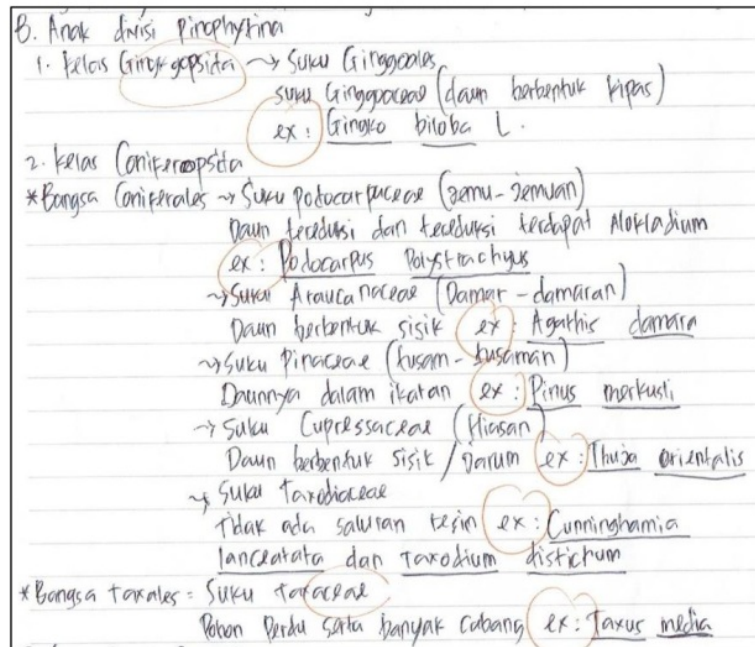 B. Anak divisi pinophytina
1. kelas Gingkgopsita → Suku Ginggoales
suku Ginggoaceae (daun berbentuk kipas)
ex : Gingko biloba L.
2. kelas Coniferopsita
*Bangsa Coniferales → Suku podocarpuceae (jemu-jemuan)
Daun tereduksi dan tereduksi terdapat Alokladium
ex : Podocarpus Polystrachyus
→ Suku Araucanaceae (Damar-damaran)
Daun berbentuk sisik ex : Agathis damara
→ Suku Pinaceae (tusam-tusaman)
Daunnya dalam ikatan ex : Pinus merkusii
→ Suku Cupressaceae (Hiasan)
Daun berbentuk sisik / Jarum ex : Thuja orientalis
→ Suku Taxodiaceae
Tidak ada saluran resin ex : Cunninghamia
lanceatata dan Taxodium distichum
*Bangsa taxales = Suku Taxaceae
Pohon Perdu serta banyak cabang ex : Taxus media